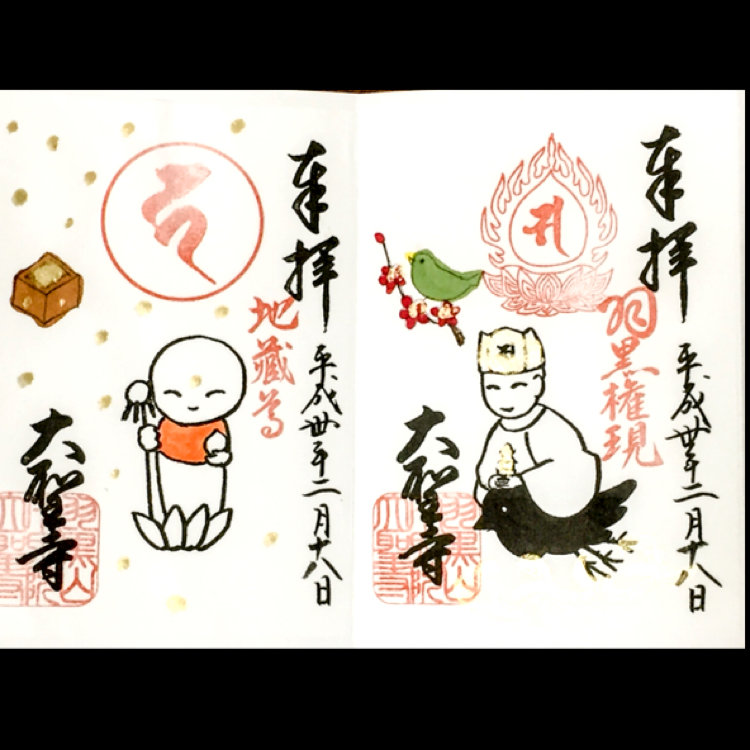 奉拝
平成卅年二月十八日
羽黒権現
大聖寺
羽黒山
奉拝
平成卅年二月十八日
地蔵尊
大聖寺
羽黒山